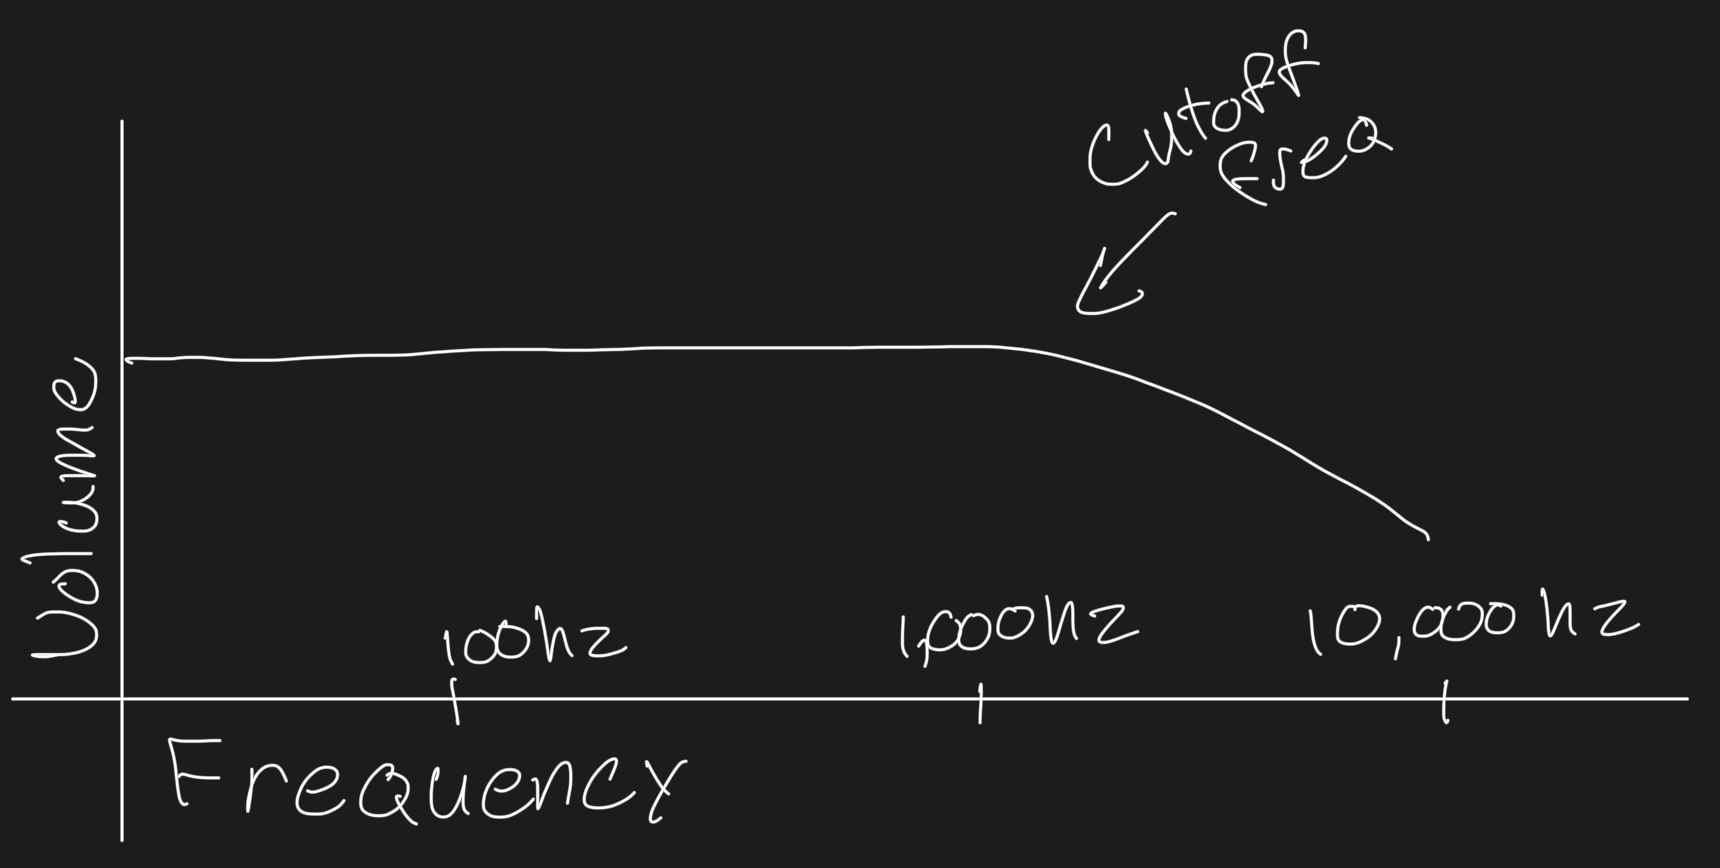 Cutoff
Freq
Volume
100hz
1,000hz
10,000hz
Frequency